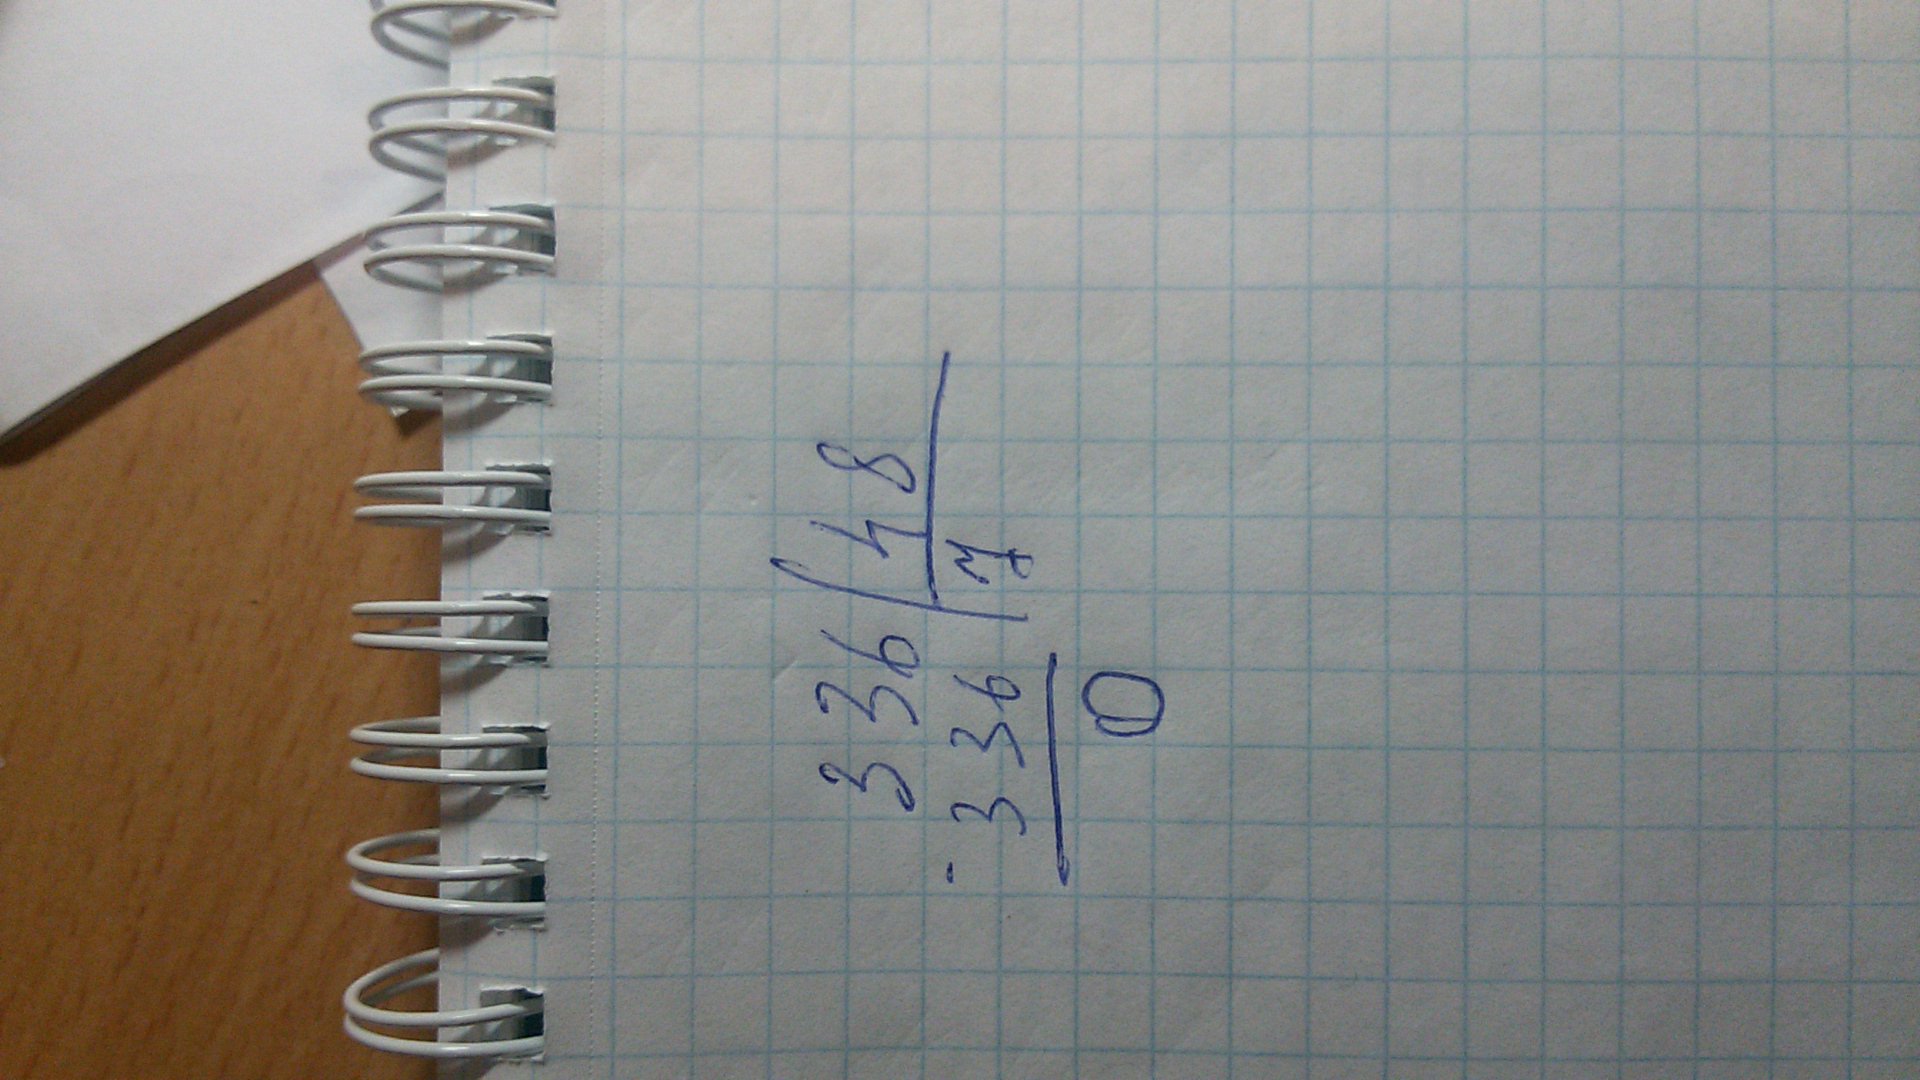 336 48
- 336 7
0